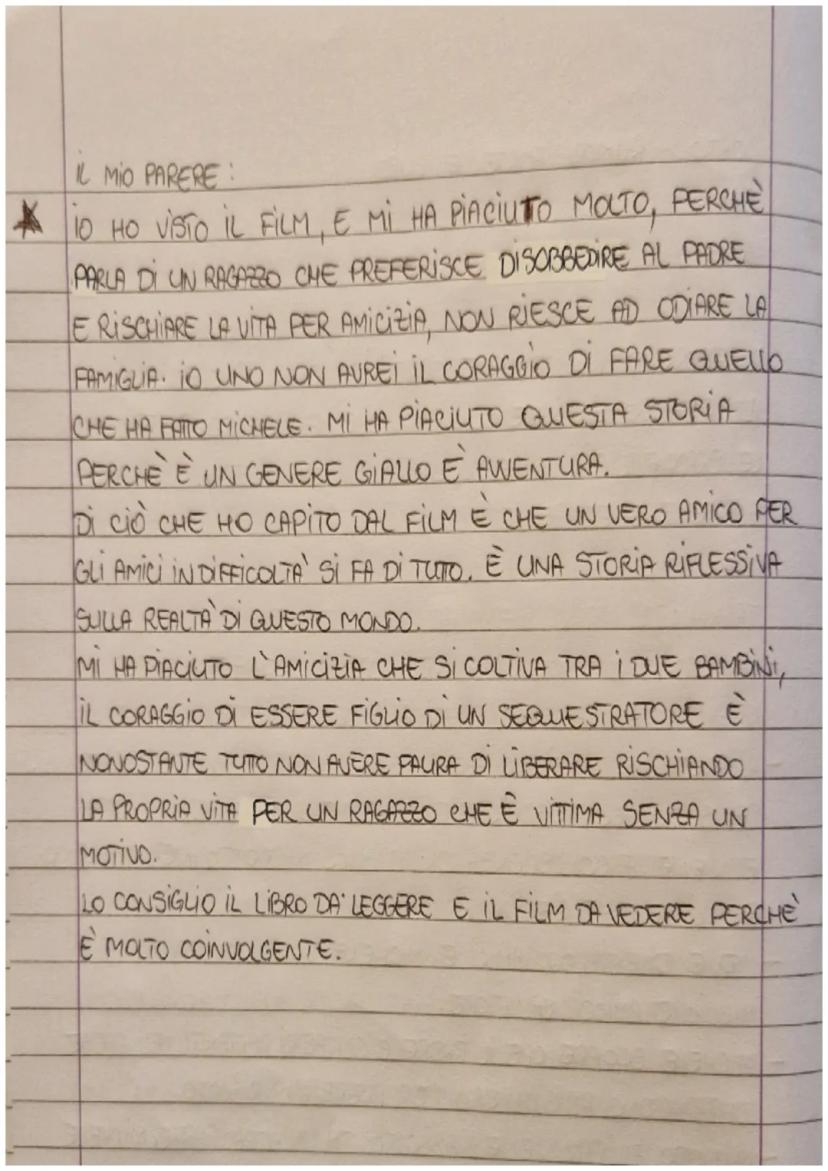 IL MIO PARERE:
IO HO VISTO IL FILM, E MI HA PIACIUTO MOLTO, PERCHÈ
PARLA DI UN RAGAZZO CHE PREFERISCE DISOBBEDIRE AL PADRE
E RISCHIARE LA VITA PER AMICIZIA, NON RIESCE AD ODIARE LA
FAMIGLIA. IO UNO NON AVREI IL CORAGGIO DI FARE QUELLO
CHE HA FATTO MICHELE. MI HA PIACIUTO QUESTA STORIA
PERCHÈ È UN GENERE GIALLO E AVVENTURA.
DI CIÒ CHE HO CAPITO DAL FILM È CHE UN VERO AMICO PER
GLI AMICI IN DIFFICOLTÀ SI FA DI TUTO. È UNA STORIA RIFLESSIVA
SULLA REALTÀ DI QUESTO MONDO.
MI HA PIACIUTO L'AMICIZIA CHE SI COLTIVA TRA I DUE BAMBINI,
IL CORAGGIO DI ESSERE FIGLIO DI UN SEQUESTRATORE È
NONOSTANTE TUTTO NON AVERE PAURA DI LIBERARE RISCHIANDO
LA PROPRIA VITA PER UN RAGAZZO CHE È VITTIMA SENZA UN
MOTIVO.
LO CONSIGLIO IL LIBRO DA LEGGERE E IL FILM DA VEDERE PERCHÈ
È MOLTO COINVOLGENTE.